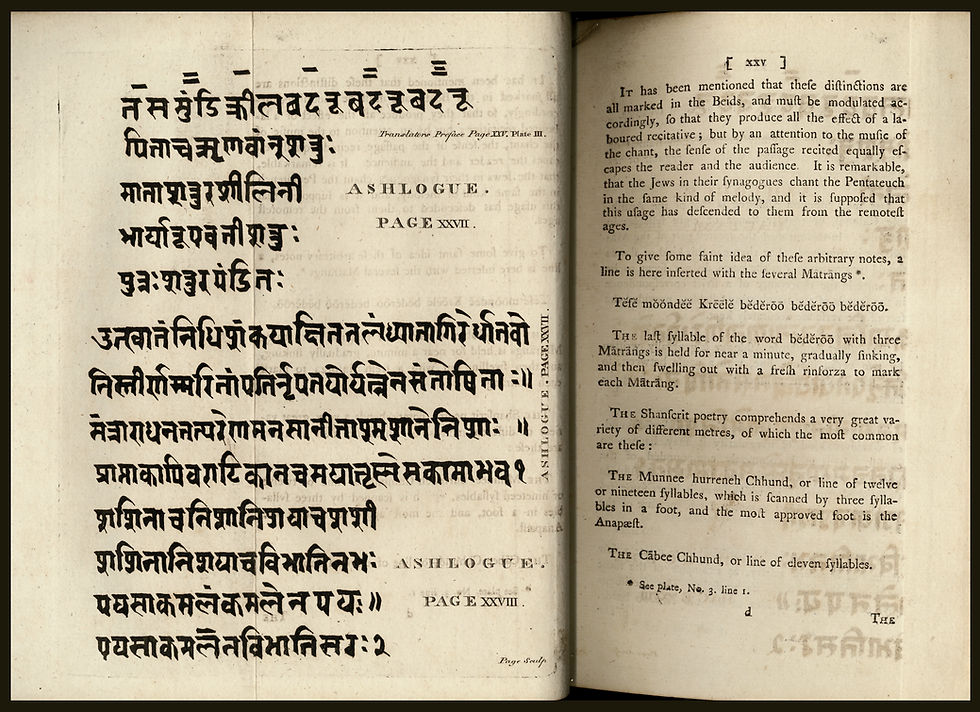 पिताचऋणवांनृशत्रुः
Translators Preface Page XXV, Plate III.
माताशत्रुरशीलिनी
ASHLOGUE.
PAGE XXVII.
भार्यारूपवतीशत्रुः
पुत्रःशत्रुरपंडितः
उत्खातंनिधिशंकयाक्षितितलंध्मातागिरेर्धातवो
निस्तीर्णःसरितांपतिर्नृपतयोर्यत्नेनसंतोषिताः॥
मंत्राराधनतत्परेणमनसानीताश्मशानेनिशाः॥
प्राप्ताकापिवराटिकानचमयातृस्नेसकामाभव१
ASHLOGUE. PAGE XXVII.
शशिनाचनिशानिशयाचशशी
शशिनानिशयाचविभातिनभः
ASHLOGUE.
पयसाकमलंकमलेनपयः॥
PAGE XXVIII.
पयसाकमलेनविभातिसरः२
Page Sculp
[ xxv ]
IT has been mentioned that theſe diſtinctions are
all marked in the Beids, and muſt be modulated ac-
cordingly, ſo that they produce all the effect of a la-
boured recitative; but by an attention to the muſic of
the chant, the ſenſe of the paſſage recited equally eſ-
capes the reader and the audience. It is remarkable,
that the Jews in their ſynagogues chant the Pentateuch
in the ſame kind of melody, and it is ſuppoſed that
this uſage has deſcended to them from the remoteſt
ages.
To give ſome faint idea of theſe arbitrary notes, a
line is here inſerted with the ſeveral Mātrāngs *.
Tĕſĕ mŏŏndĕĕ Krĕĕlĕ bĕdĕrōō bĕdĕrōō bĕdĕrōō.
THE laſt ſyllable of the word bĕdĕrōō with three
Mātrāngs is held for near a minute, gradually ſinking,
and then ſwelling out with a freſh rinforza to mark
each Mātrāng.
THE Shanſcrit poetry comprehends a very great va-
riety of different metres, of which the moſt common
are theſe:
THE Munnee hurreneh Chhund, or line of twelve
or nineteen ſyllables, which is ſcanned by three ſylla-
bles in a foot, and the moſt approved foot is the
Anapæſt.
THE Cābee Chhund, or line of eleven ſyllables.
* See plate, No. 3. line 1.
d
THE